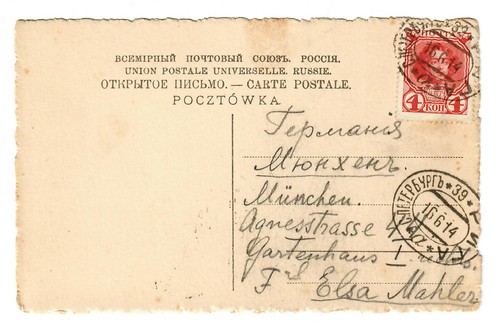 ВСЕМІРНЫЙ ПОЧТОВЫЙ СОЮЗЪ. РОССІЯ.
UNION POSTALE UNIVERSELLE. RUSSIE.
ОТКРЫТОЕ ПИСЬМО. — CARTE POSTALE.
POCZTÓWKA.
4 КОП 4
16.6.14
Германія
Мюнхенъ
München.
Agnesstrasse 4
Gartenhaus I
Frl Elsa Mahler
С.ПЕТЕРБУРГЪ * 39 *
16.6.14